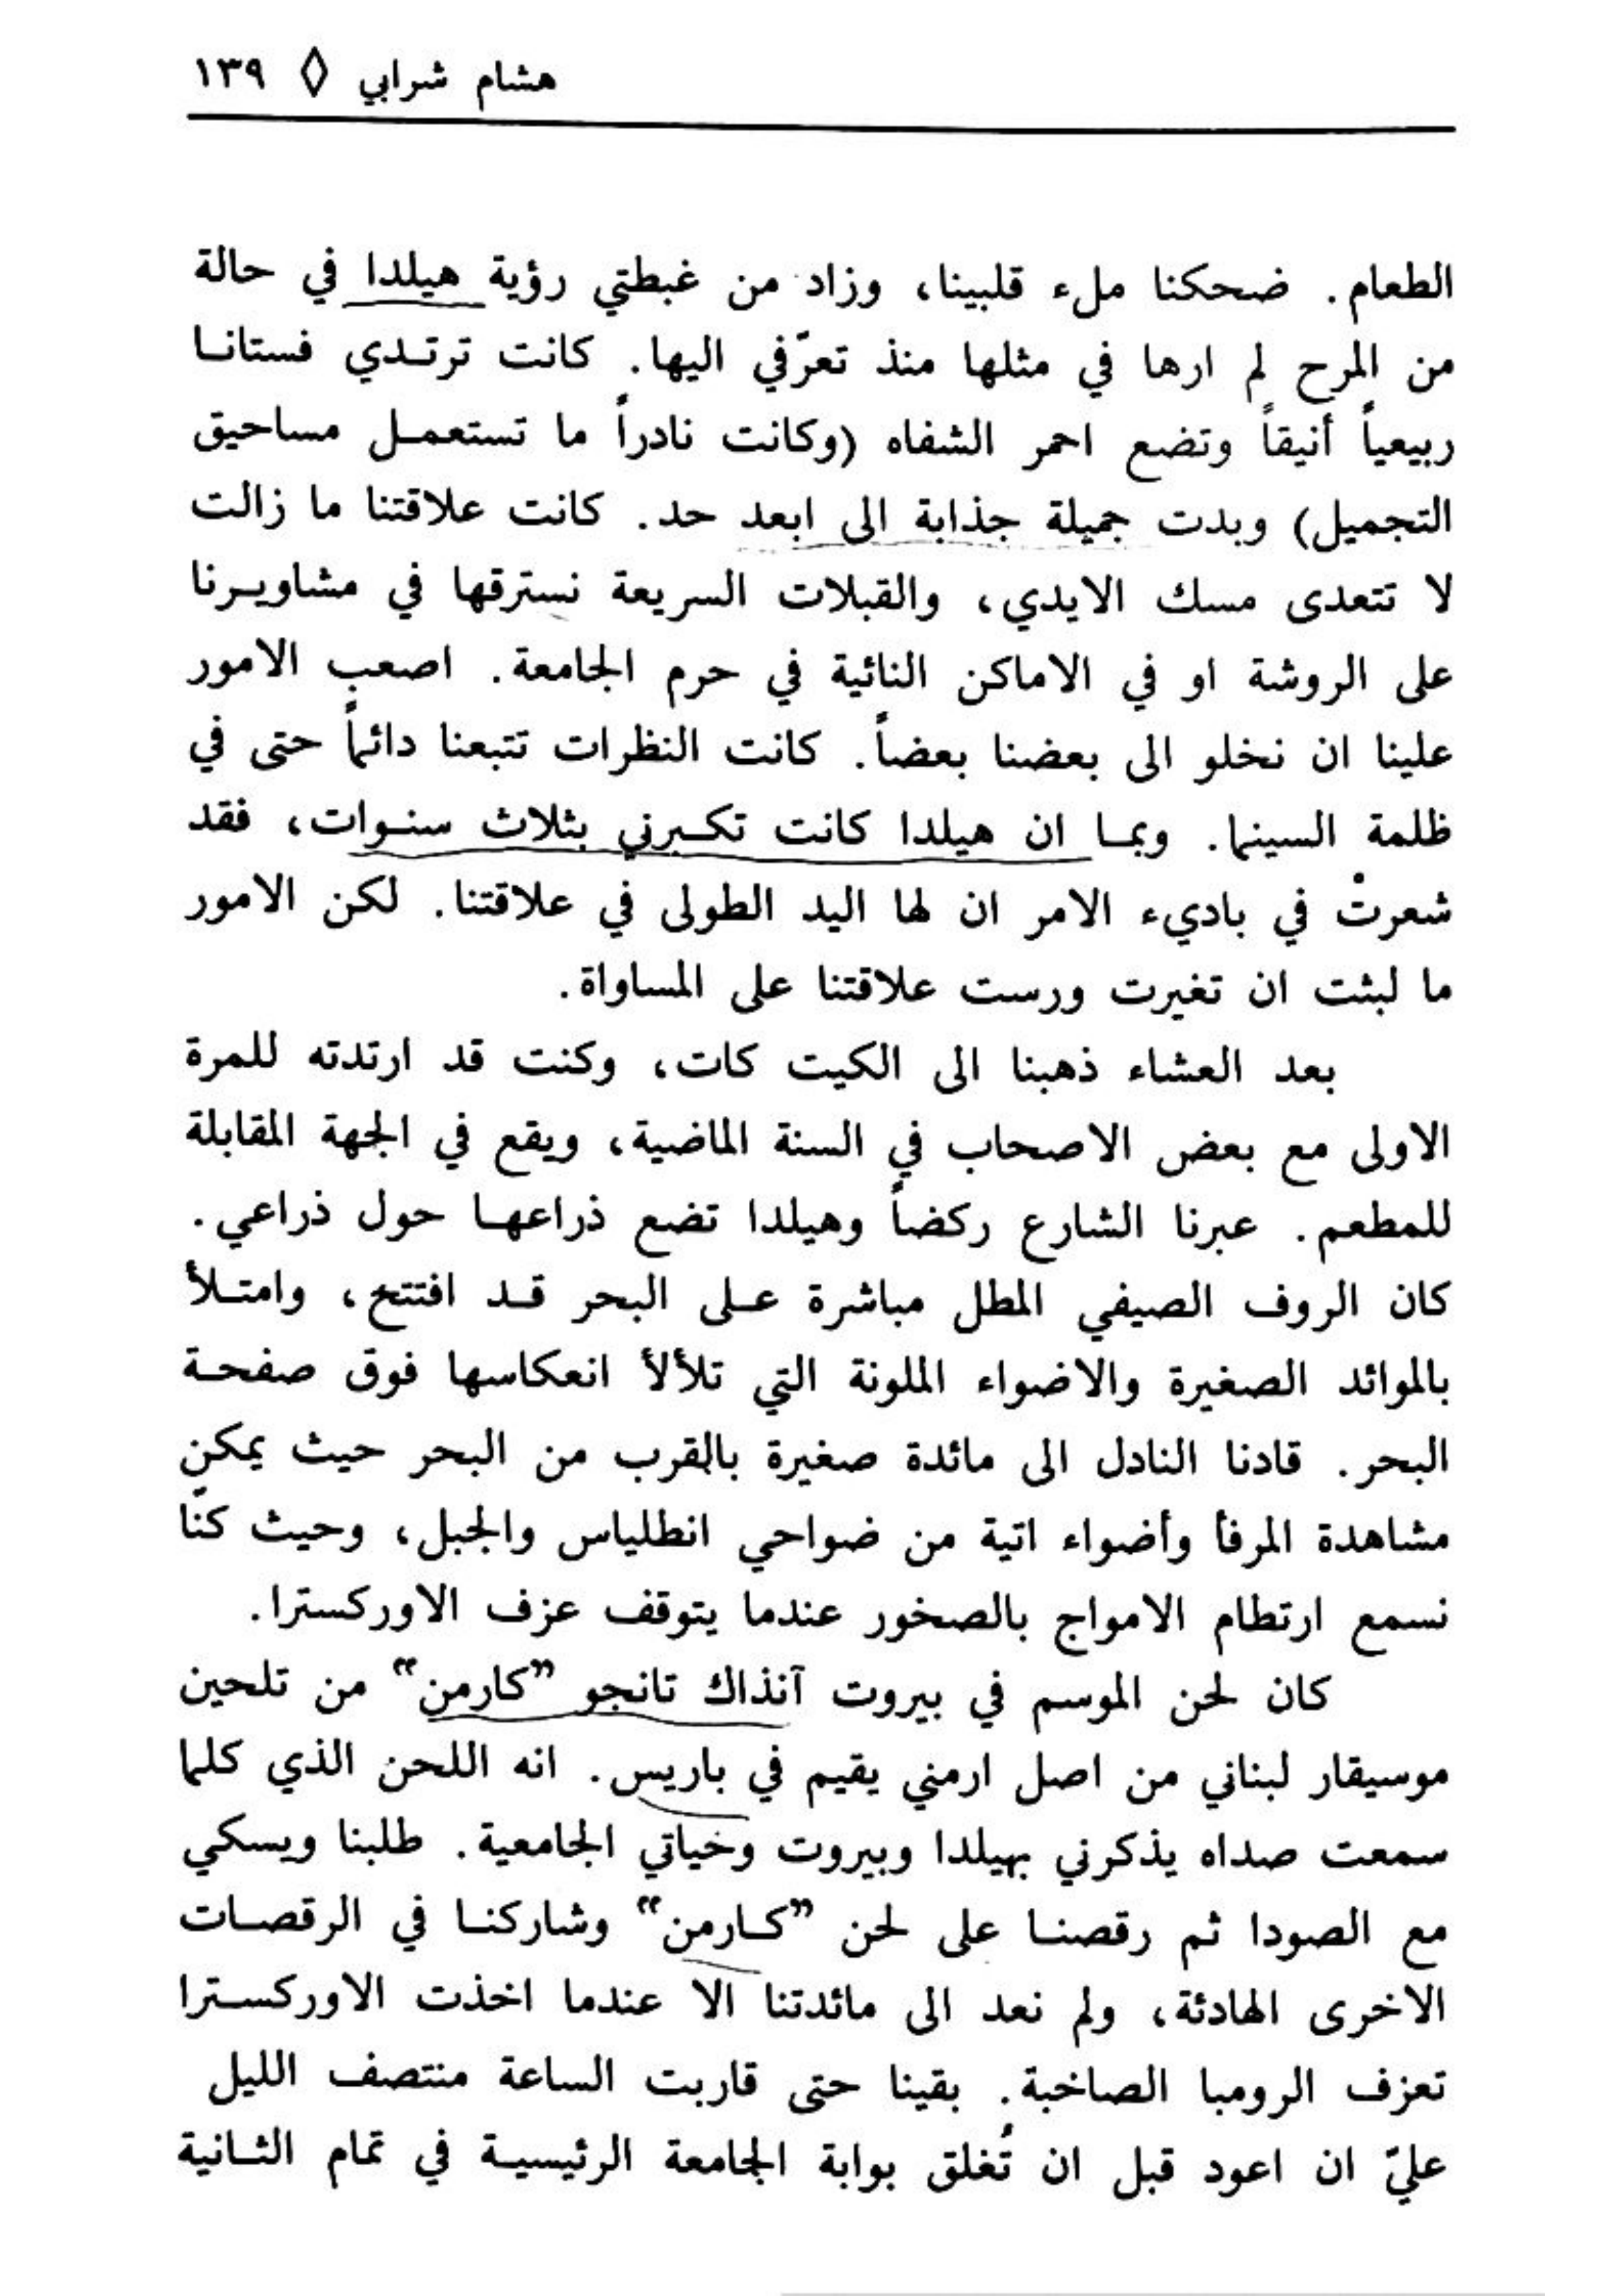 هشام شرابي ◊ ١٣٩
الطعام. ضحكنا ملء قلبينا، وزاد من غبطتي رؤية هيلدا في حالة
من المرح لم ارها في مثلها منذ تعرّفي اليها. كانت ترتدي فستانا
ربيعياً أنيقاً وتضع احمر الشفاه (وكانت نادراً ما تستعمل مساحيق
التجميل) وبدت جميلة جذابة الى ابعد حد. كانت علاقتنا ما زالت
لا تتعدى مسك الايدي، والقبلات السريعة نسترقها في مشاويرنا
على الروشة او في الاماكن النائية في حرم الجامعة. اصعب الامور
علينا ان نخلو الى بعضنا بعضاً. كانت النظرات تتبعنا دائماً حتى في
ظلمة السينما. وبما ان هيلدا كانت تكبرني بثلاث سنوات، فقد
شعرتْ في باديء الامر ان لها اليد الطولى في علاقتنا. لكن الامور
ما لبثت ان تغيرت ورست علاقتنا على المساواة.
بعد العشاء ذهبنا الى الكيت كات، وكنت قد ارتدته للمرة
الاولى مع بعض الاصحاب في السنة الماضية، ويقع في الجهة المقابلة
للمطعم. عبرنا الشارع ركضاً وهيلدا تضع ذراعها حول ذراعي.
كان الروف الصيفي المطل مباشرة على البحر قد افتتح، وامتلأ
بالموائد الصغيرة والاضواء الملونة التي تلألأ انعكاسها فوق صفحة
البحر. قادنا النادل الى مائدة صغيرة بالقرب من البحر حيث يمكن
مشاهدة المرفأ وأضواء اتية من ضواحي انطلياس والجبل، وحيث كنّا
نسمع ارتطام الامواج بالصخور عندما يتوقف عزف الاوركسترا.
كان لحن الموسم في بيروت آنذاك تانجو ”كارمن“ من تلحين
موسيقار لبناني من اصل ارمني يقيم في باريس. انه اللحن الذي كلما
سمعت صداه يذكرني بهيلدا وبيروت وحياتي الجامعية. طلبنا ويسكي
مع الصودا ثم رقصنا على لحن ”كارمن“ وشاركنا في الرقصات
الاخرى الهادئة، ولم نعد الى مائدتنا الا عندما اخذت الاوركسترا
تعزف الرومبا الصاخبة. بقينا حتى قاربت الساعة منتصف الليل
عليّ ان اعود قبل ان تُغلق بوابة الجامعة الرئيسية في تمام الثانية